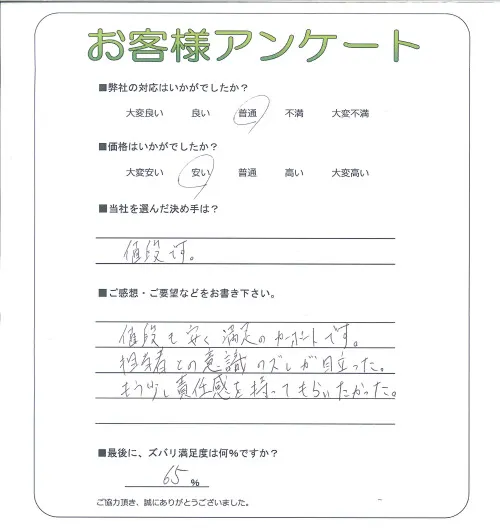 お客様アンケート
■弊社の対応はいかがでしたか？
大変良い 良い 普通 不満 大変不満
■価格はいかがでしたか？
大変安い 安い 普通 高い 大変高い
■当社を選んだ決め手は？
値段です。
■ご感想・ご要望などをお書き下さい。
値段も安く満足のカーポートです。
担当者との意識のズレが目立った。
もう少し責任感を持ってもらいたかった。
■最後に、ズバリ満足度は何%ですか？
65 %
ご協力頂き、誠にありがとうございました。